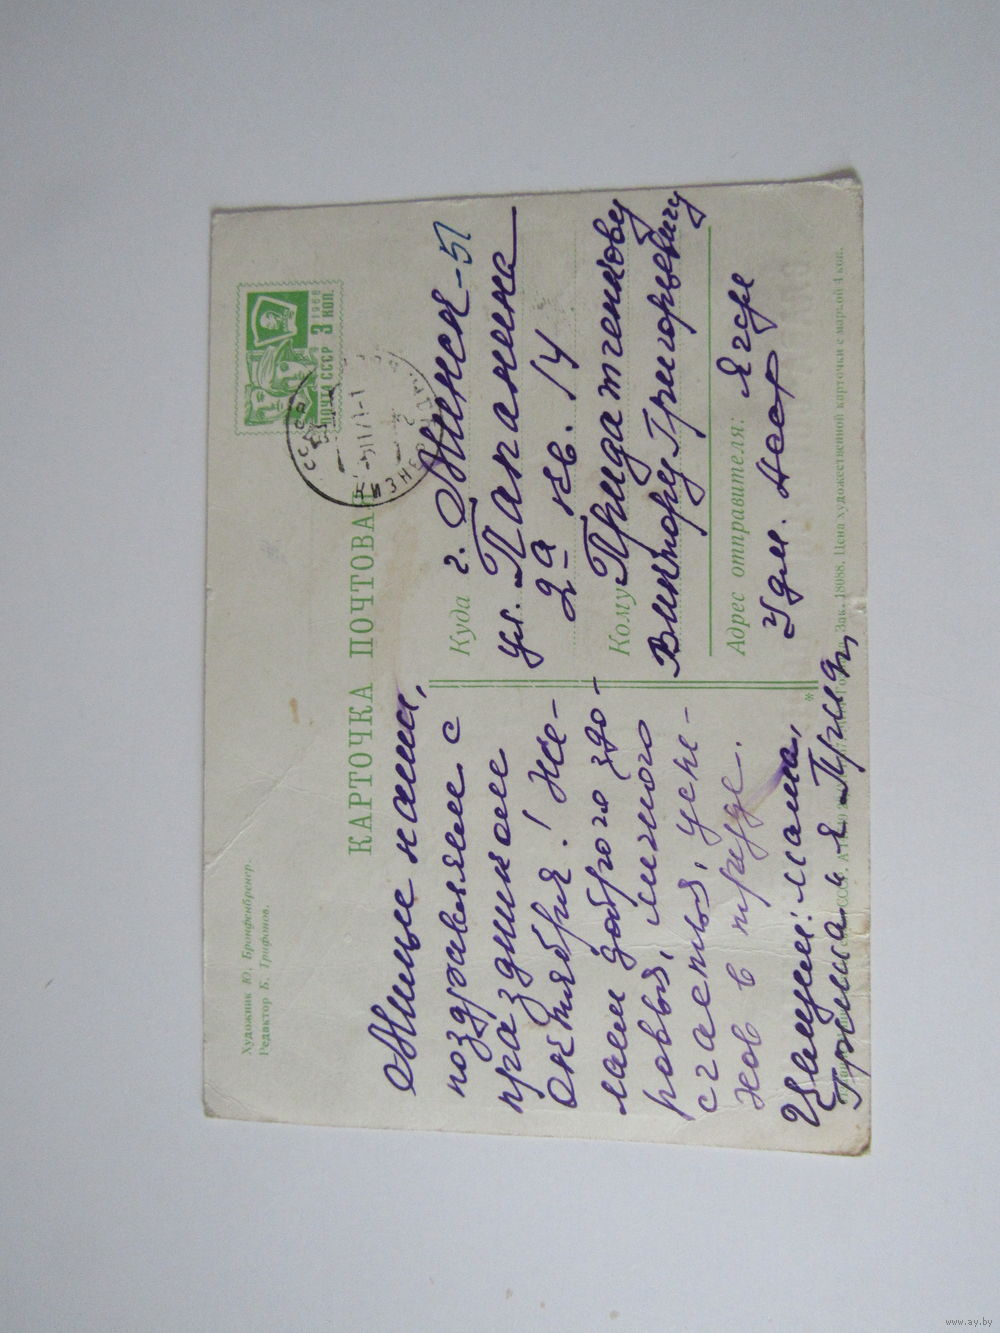 Художник Ю. Бронфенбренер.
Редактор Б. Трифонов.
КАРТОЧКА ПОЧТОВАЯ
ПОЧТА СССР 3 КОП.
1966
СССР
Милые наши,
поздравляем с
праздником
Октября! Же-
лаем доброго здо-
ровья, личного
счастья, успе-
хов в труде.
Целуем: мама,
Гриша и я
Куда г. Минск-51
ул. Папанина
2а кв. 14
Кому Придатченкову
Виктору Григорьевичу
Адрес отправителя:
Удм. АССР
Зак. 18088. Цена художественной карточки с маркой 4 коп.
www.ay.by